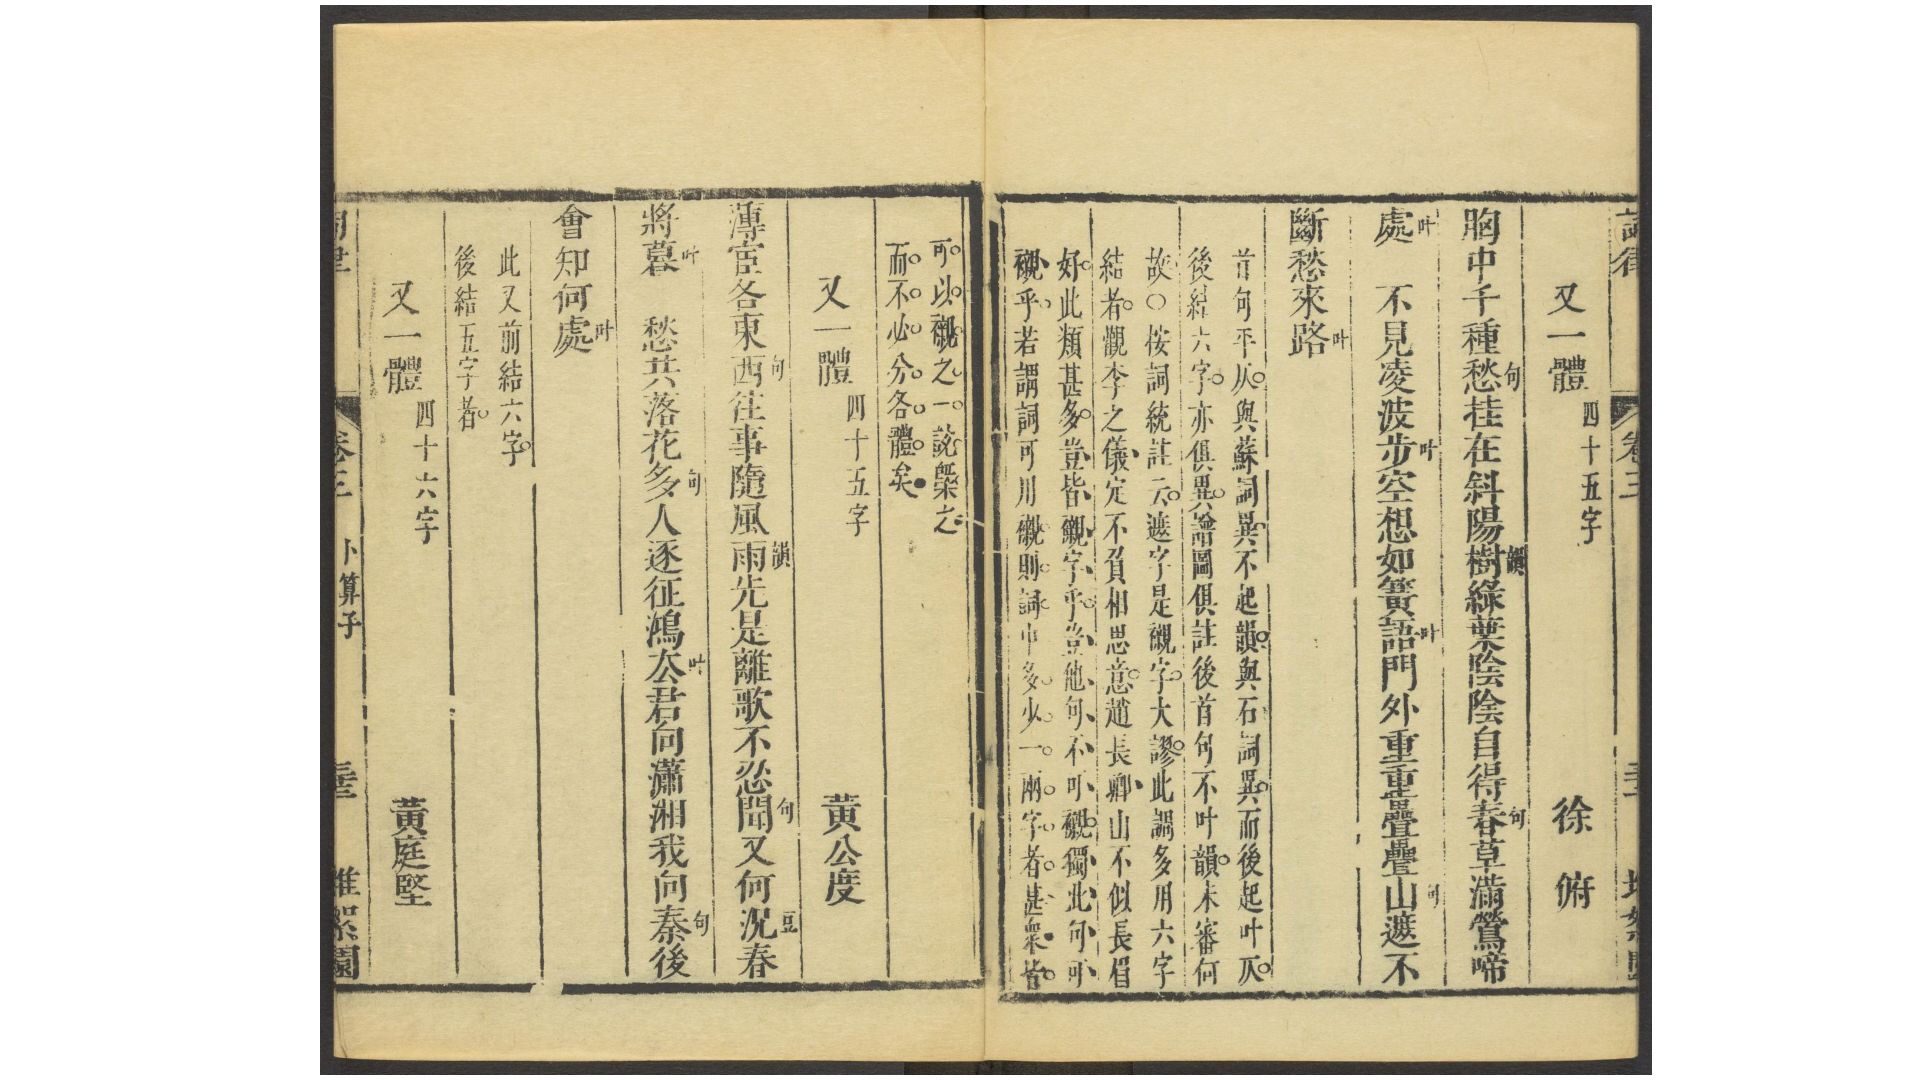 詞律 卷三
又一體 四十五字 徐俯
胸中千種愁句挂在斜陽樹韻綠葉陰陰自得春句草滿鶯啼
處叶 不見凌波步叶空想如簧語叶門外重重疊疊山句遮不
斷愁來路叶
首句平仄與蘇詞異不起韻與石詞異而後起叶仄
後結六字亦俱異譜圖俱註後首句不叶韻未審何
故○按詞統註云遮字是襯字大謬此調多用六字
結者觀李之儀定不負相思意趙長卿山不似長眉
好此類甚多豈皆襯字乎豈他句不可襯獨此句可
襯乎若謂詞可用襯則詞中多少一兩字者甚衆皆
可以襯之一說槩之
而不必分各體矣
又一體 四十五字 黃公度
薄宦各東西句往事隨風雨韻先是離歌不忍聞句又何況豆春
將暮叶 愁共落花多句人逐征鴻去叶君向瀟湘我向秦句後
會知何處叶
此又前結六字
後結五字者
又一體 四十六字 黃庭堅
詞律 卷三 卜算子 堆絮園